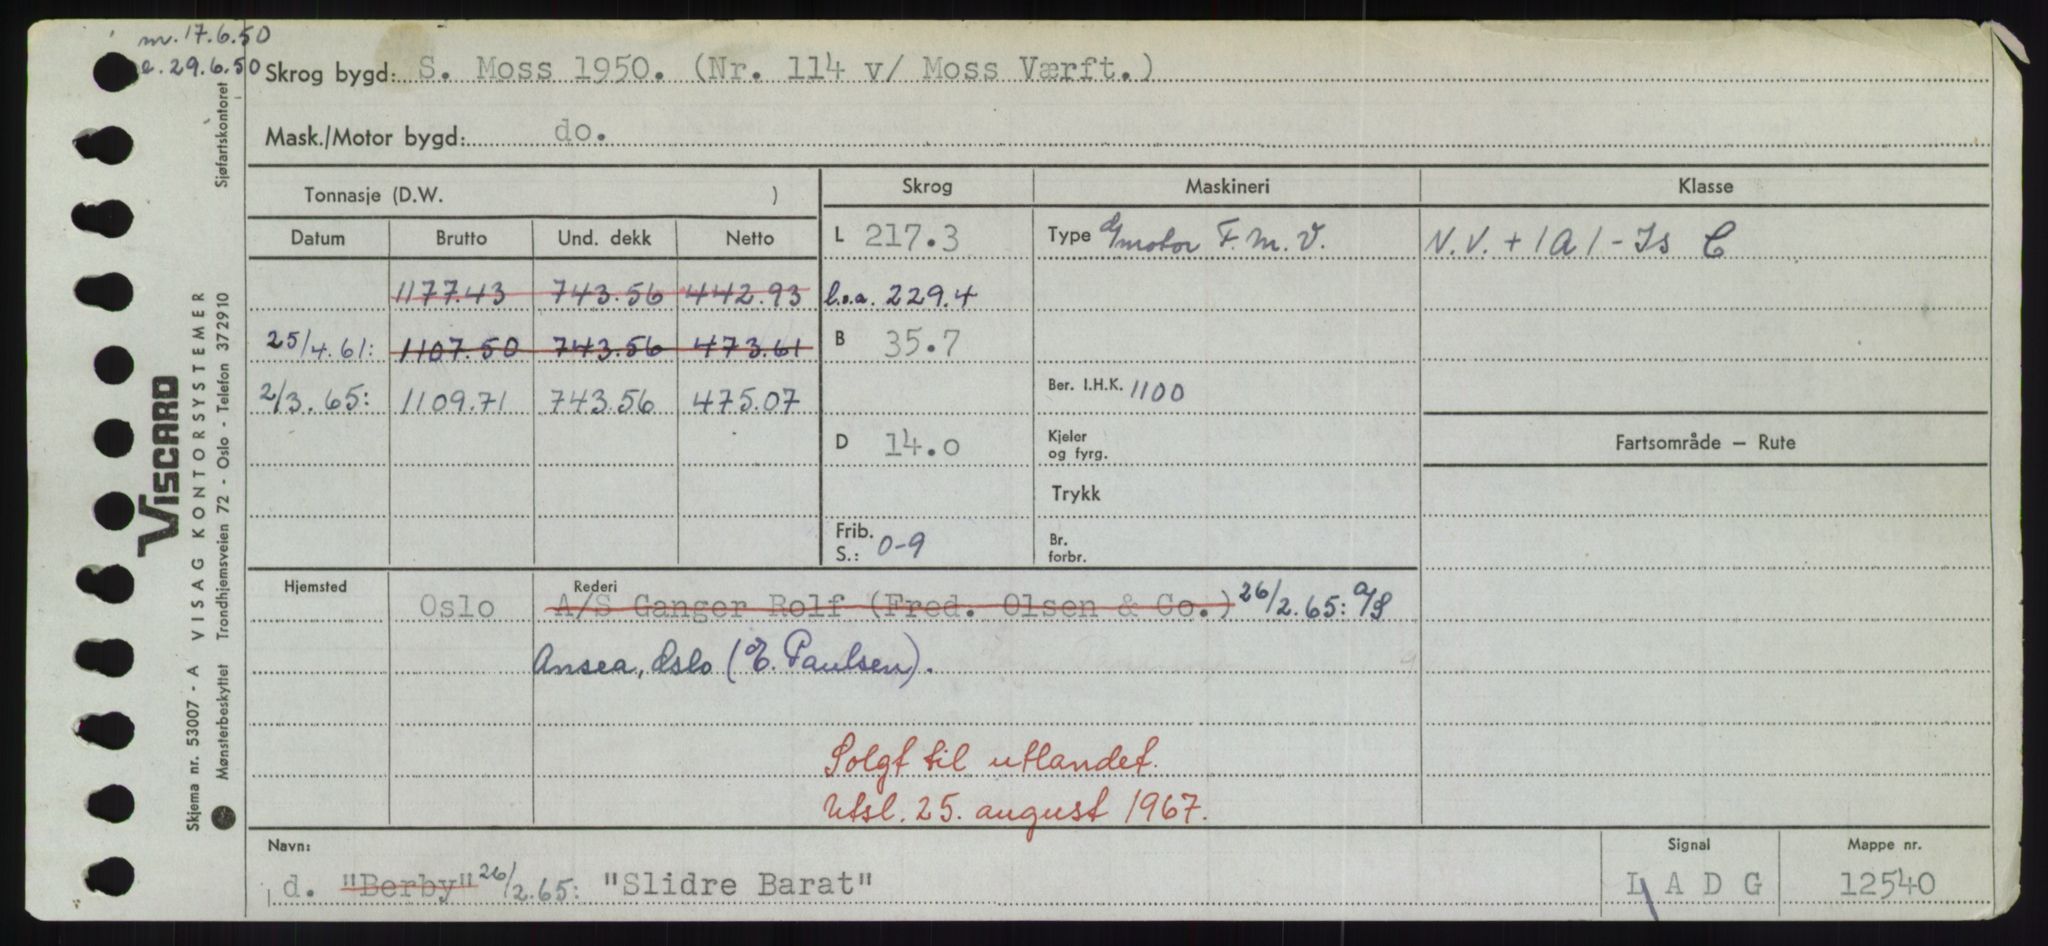 m. 17.6.50
e. 29.6.50
Skrog bygd: S. Moss 1950. (Nr. 114 v/ Moss Værft.)
Mask./Motor bygd: do.
Tonnasje (D.W. )
Skrog
Maskineri
Klasse
Datum
Brutto
Und. dekk
Netto
L 217.3
Type motor F.M.V.
N.V. + 1A1 - Is C
1177.43 743.56 442.93
l.o.a. 229.4
25/4.61: 1107.50 743.56 473.61
B 35.7
2/3.65: 1109.71 743.56 475.07
Ber. I.H.K. 1100
D 14.0
Kjeler
og fyrg.
Fartsområde – Rute
Trykk
Frib.
S.: 0-9
Br.
forbr.
Hjemsted
Oslo
Rederi
A/S Ganger Rolf (Fred. Olsen & Co.) 26/2.65: A/S
Ansea, Oslo (E. Paulsen).
Solgt til utlandet.
Utsl. 25. august 1967.
Navn:
d. "Berby" 26/2.65: "Slidre Barat"
Signal
L A D G
Mappe nr.
12540
VISCARD
Skjema nr. 53007 - A VISAG KONTORSYSTEMER
Mønsterbeskyttet Trondhjemsveien 72 - Oslo - Telefon 372910
Sjøfartskontoret